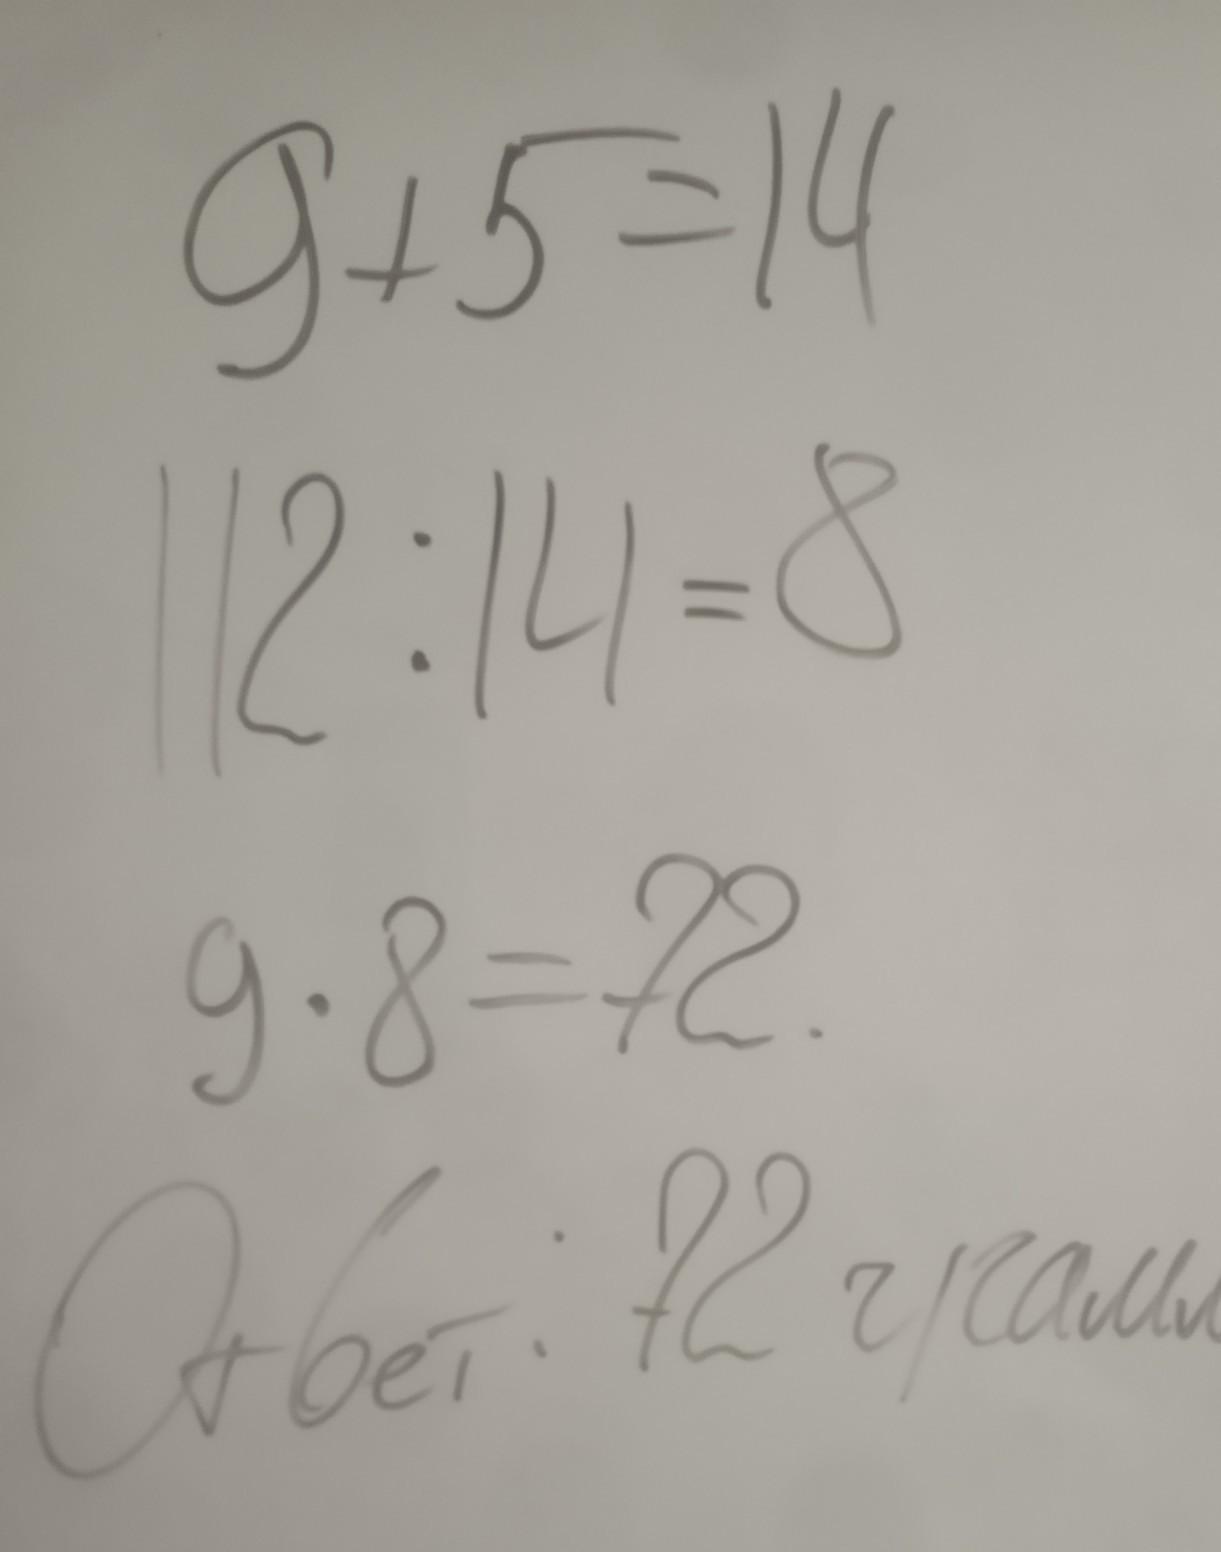 9+5=14
112:14=8
9·8=72.
Ответ: 72 грамм